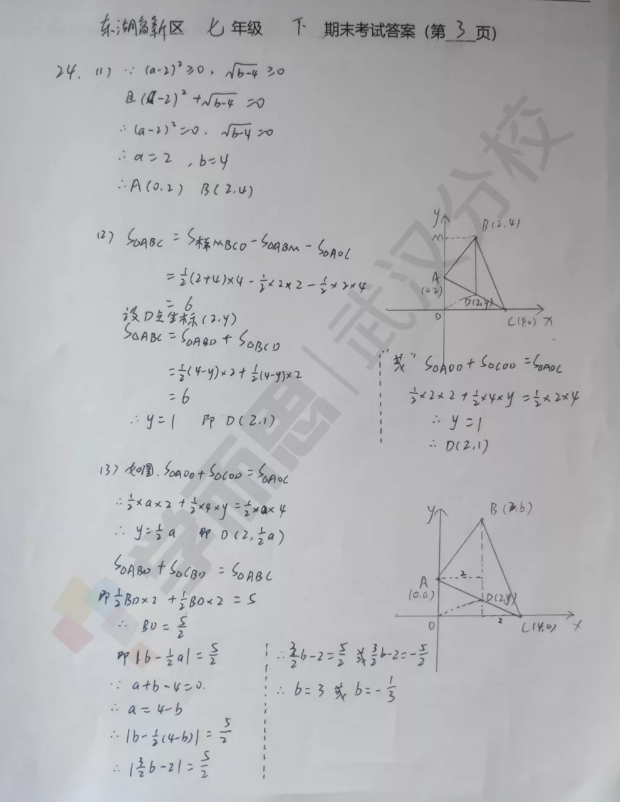 东湖高新区 七 年级 下 期末考试答案（第 3 页）
24. (1) ∵ (a-2)²≥0, √(b-4) ≥0
且 (a-2)² + √(b-4) =0
∴ (a-2)²=0, √(b-4)=0
∴ a=2, b=4
∴ A(0,2) B(2,4)
(2) S△ABC = S梯MBCO - S△ABM - S△AOC
= ½(2+4)×4 - ½×2×2 - ½×2×4
= 6
设D点坐标(2,y)
S△ABC = S△ABD + S△BCD
= ½(4-y)×2 + ½(4-y)×2
= 6
∴ y=1 即 D(2,1)
y
M
B(2,4)
A
(0,2)
D(2,y)
O
C(4,0)
x
"或" S△AOD + S△COD = S△AOC
½×2×2 + ½×4×y = ½×2×4
∴ y=1
∴ D(2,1)
(3) 如图, S△AOD + S△COD = S△AOC
∴ ½×a×2 + ½×4×y = ½×a×4
∴ y=½a 即 D(2,½a)
S△ABD + S△CBD = S△ABC
即 ½BD×2 + ½BD×2 = 5
∴ BD = 5/2
即 |b-½a| = 5/2
∵ a+b-4=0
∴ a=4-b
∴ |b-½(4-b)| = 5/2
∴ |3/2b-2| = 5/2
∴ 3/2b-2 = 5/2 或 3/2b-2 = -5/2
∴ b=3 或 b=-1/3
y
B(2,b)
A
2
(0,a)
D(2,y)
O
2
C(4,0)
x
学而思 武汉分校